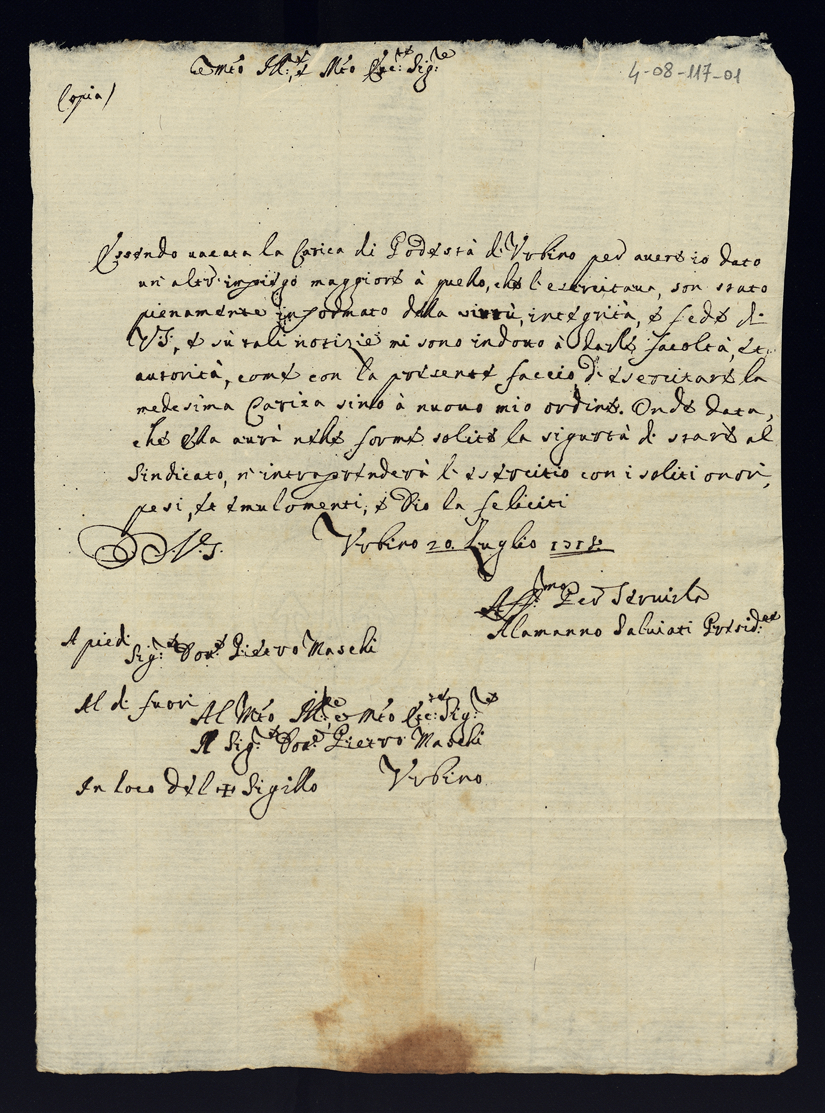 e Mto Ill:re, e Mto Ecc:te Sig:re
4-08-117-01
Copia)
Essendo uacata la Carica di Podestà di Vrbino per auere io dato
un'altro impiego maggiore à quello, che l'esercitaua, son stato
pienamente informato della uirtù, integrità, e fede di
VS:, e sù tali notizie mi sono indotto à darle facoltà, et
autorità, come con la presente faccio d'esercitare la
medesima Carica sino à nuouo mio ordine. Onde data,
che ella aurà nelle forme solite la sigurtà di stare al
Sindicato, n'intraprenderà l'esercitio con i soliti onori,
pesi, et emulomenti, e Dio la feliciti
D VS: Vrbino 20 Luglio
Aff:mo Per Seruirla
Alamanno Saluiati Presid:te
A piedi
Sig:re Dot:re Pietro Maschi
Al di fuori
Al Mto Ill:re e Mto Ecc:te Sig:re
Il Sig:re Dot:re Pietro Maschi
In loco del + Sigillo Vrbino